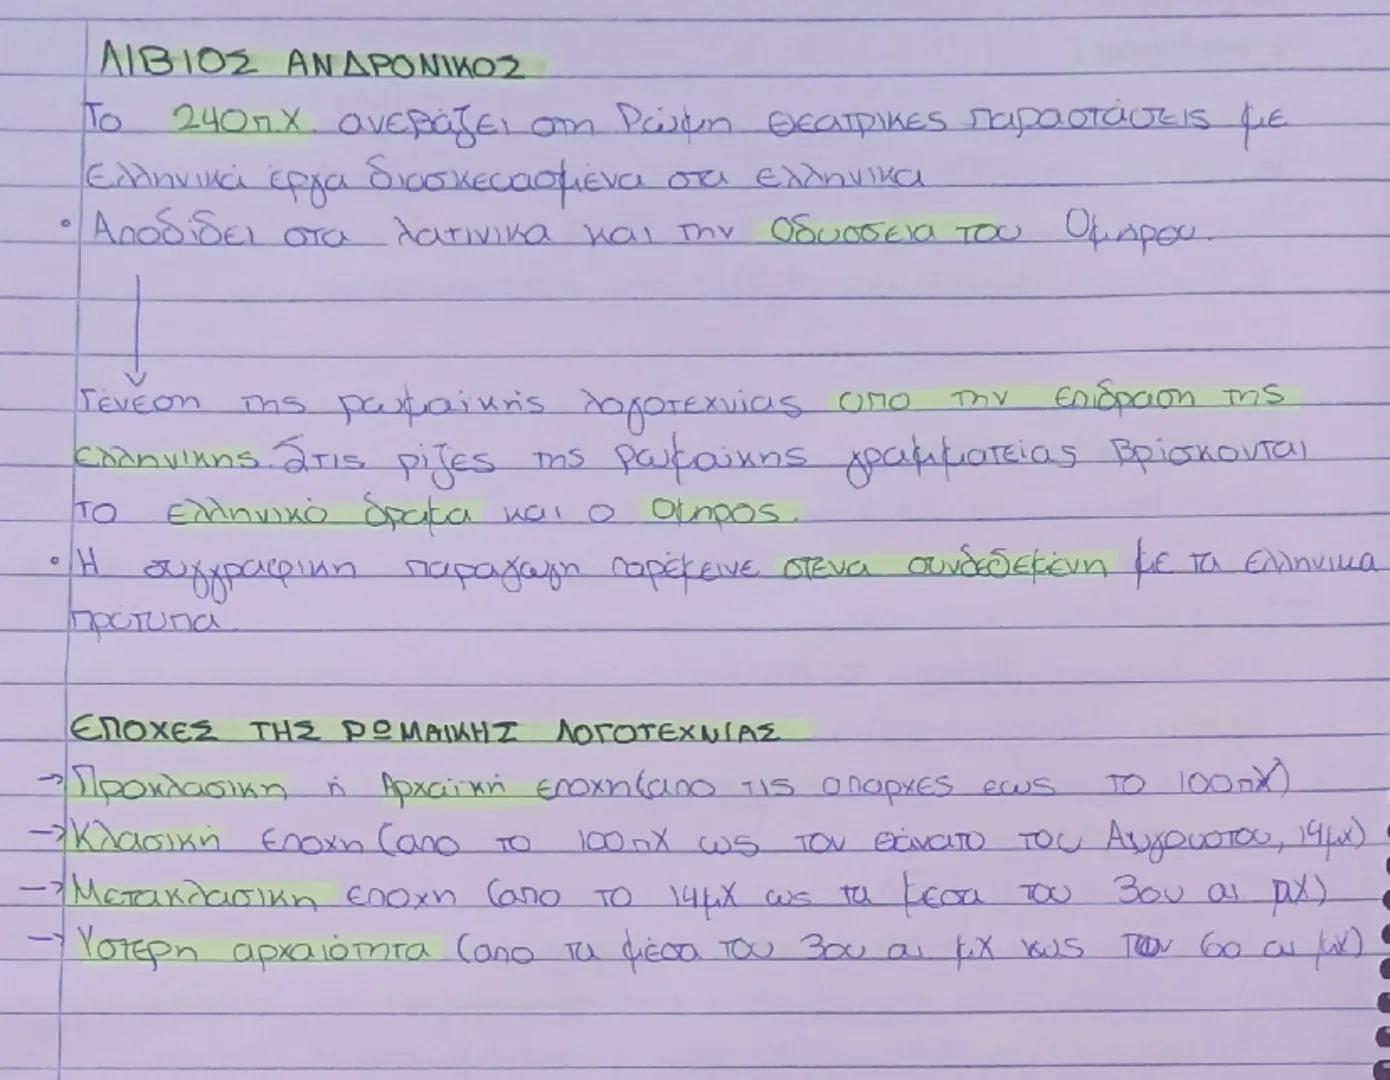 ΛΙΒΙΟΣ ΑΝΔΡΟΝΙΚΟΣ
Το 240π.Χ. ανεβάζει στη Ρώμη θεατρικες παραστάσεις με
Ελληνικά έργα διασκεασμένα στα ελληνικα
• Αποδίδει στα λατινικα και την Οδυσσεια του Ομηρου.
↓
Γένεση της ρωμαικής λογοτεχνίας απο την επιδραση της
ελληνικης. Στις ρίζες της ρωμαικης γραμματείας βρίσκονται
το ελληνικό δραμα και ο Ομηρος.
• Η συγγραφικη παραγωγη παρέμεινε στενα συνδεδεμένη με τα ελληνικα
πρότυπα
ΕΠΟΧΕΣ ΤΗΣ ΡΩΜΑΙΚΗΣ ΛΟΓΟΤΕΧΝΙΑΣ
→ Προκλασικη ή Αρχαϊκή εποχη (απο τις απαρχες εως το 100πΧ)
→ Κλασική εποχη (απο το 100πΧ ως τον θάνατο του Αυγουστου, 14μχ)
→ Μετακλασικη εποχη (απο το 14μΧ ως τα μεσα του 3ου αι μΧ)
→ Υστερη αρχαιότητα (απο τα μέσα του 3ου αι μΧ εως τον 6ο αι μχ)